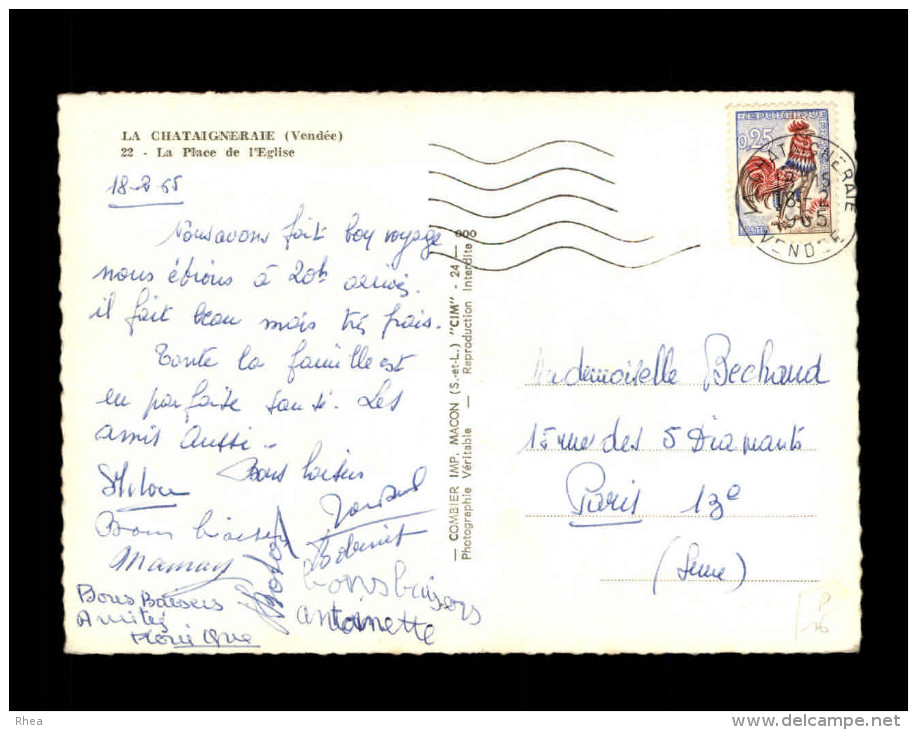 LA CHATAIGNERAIE (Vendée)
22 - La Place de l'Eglise
18-2 65
Nous avons fait bon voyage
nous étions à 20h arrivés.
il fait beau mais très frais.
Toute la famille est
en parfaite santé. Les
amis aussi -
Bons baisers
Bons baisers
Mamay
Bons Baisers
Amitiés
Monique
Bons baisers
antoinette
— COMBIER IMP. MACON (S.-et-L.) "CIM" - 24 — 000
Photographie Véritable — Reproduction Interdite
REPUBLIQUE
0,25
LA CHATAIGNERAIE
18-2
1965
VENDEE
Mademoiselle Bechaud
rue des 5 Diamants
Paris 13e
(Seine)
Rhea
www.delcampe.net